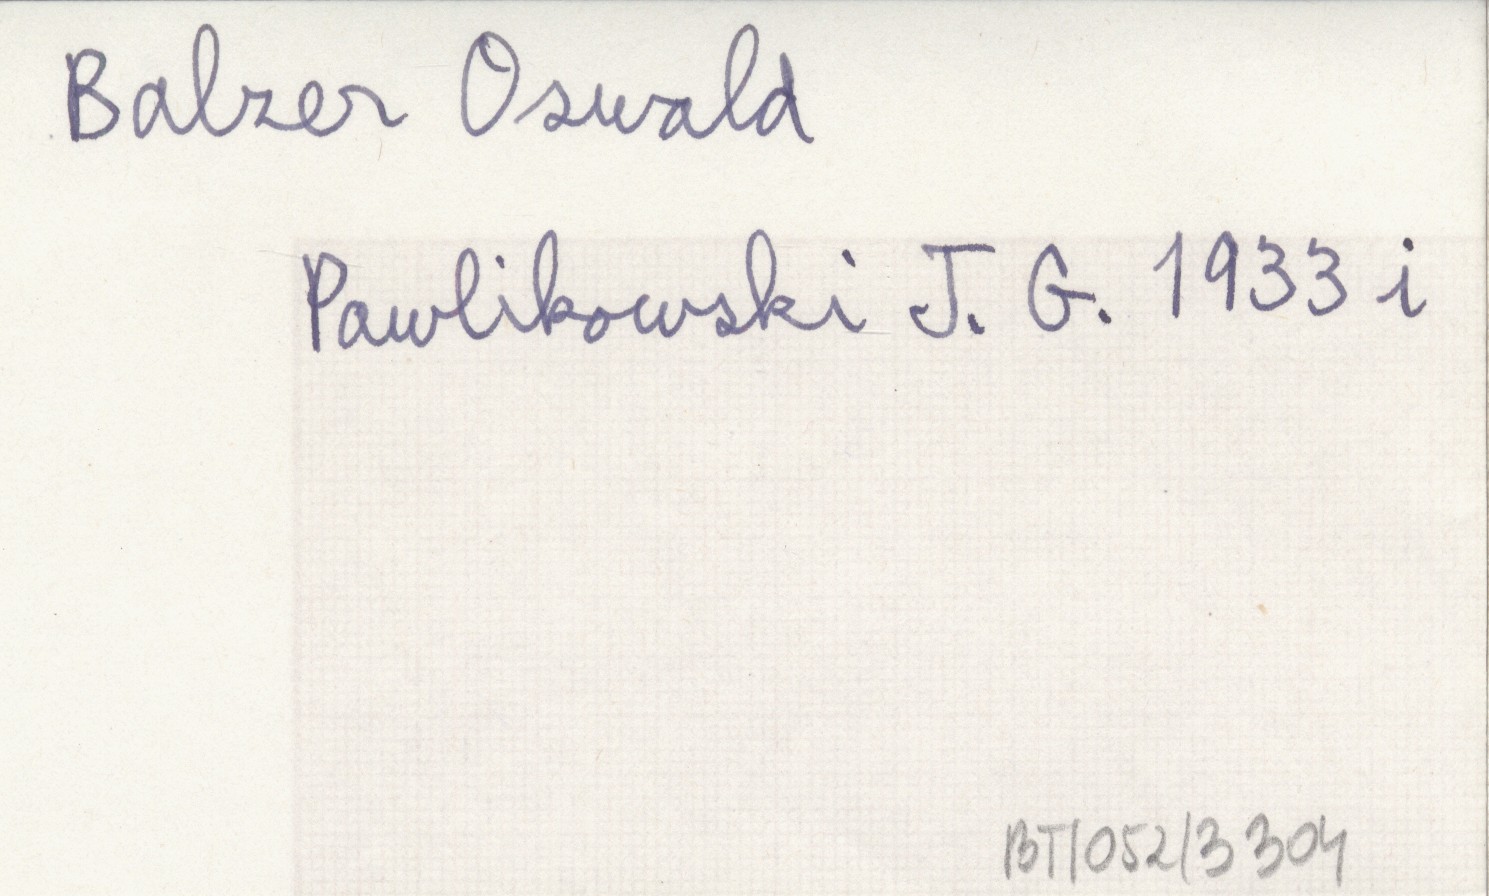 Balzer Oswald
Pawlikowski J. G. 1933 i
BT/052/3304